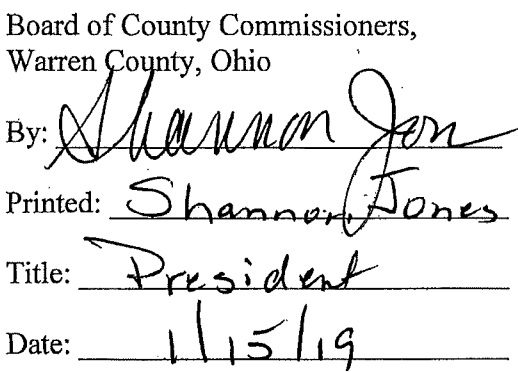 Board of County Commissioners,
Warren County, Ohio
By: Shannon Jon
Printed: Shannon Jones
Title: President
Date: 1/15/19